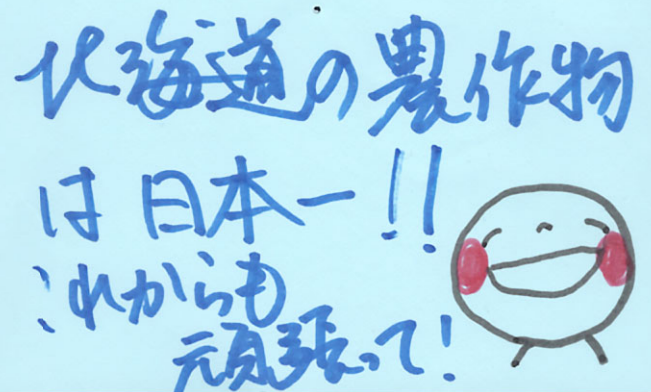 北海道の農作物
は日本一!!
これからも
頑張って!